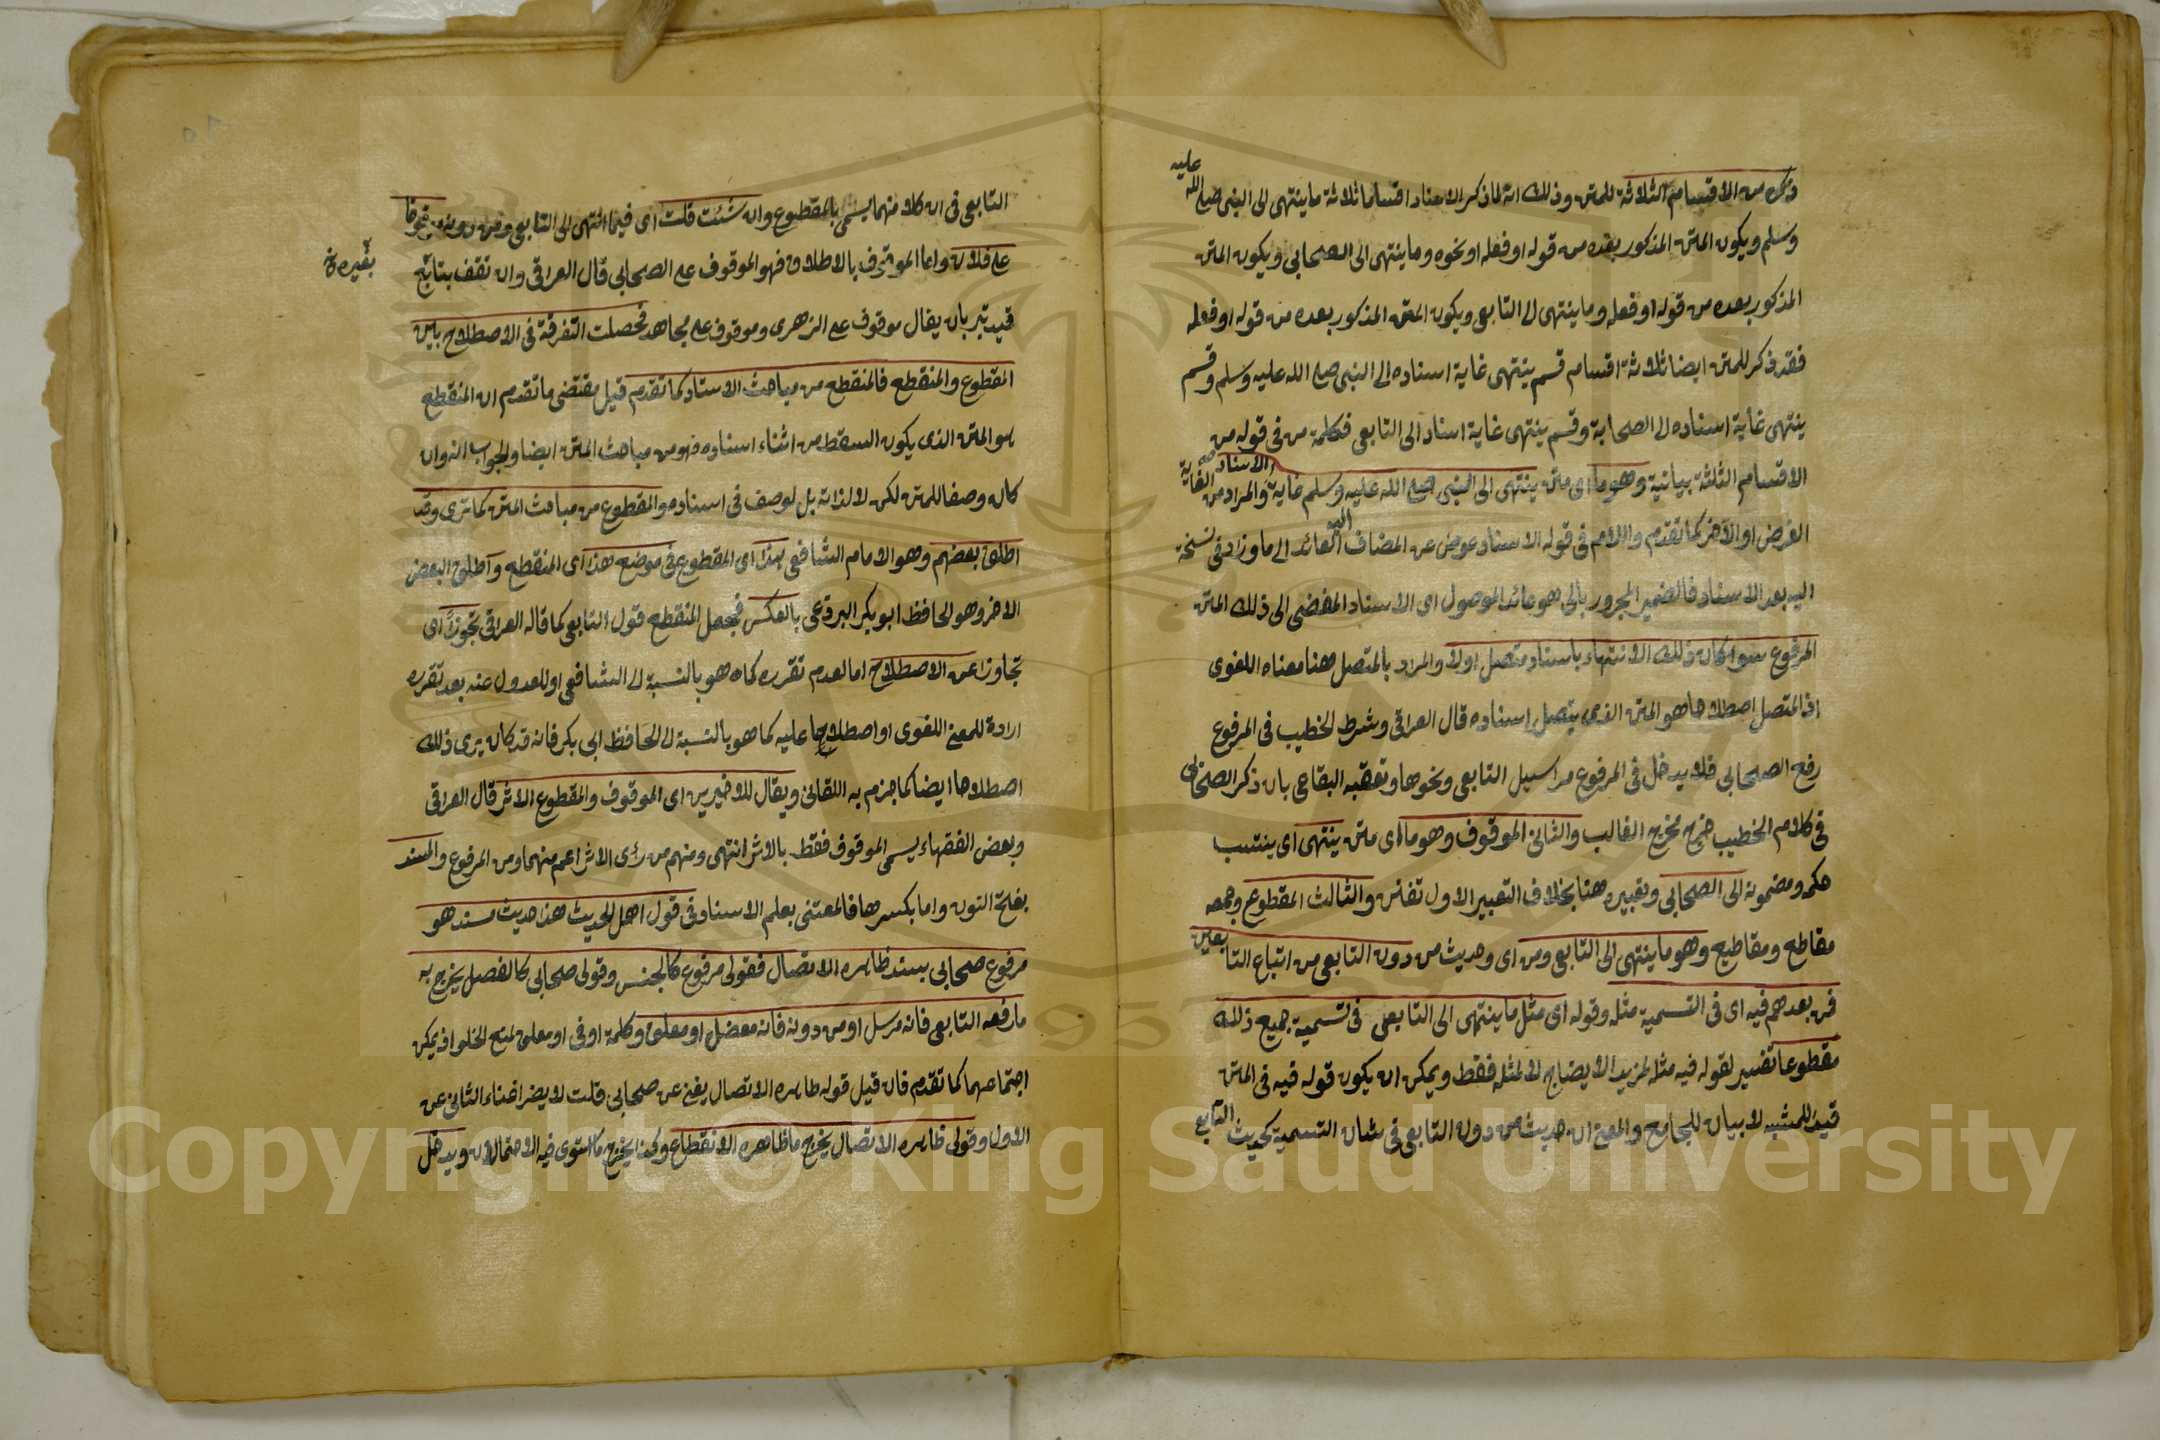 ذكر من الاقسام الثلاثة للمتن وذلك انه لما ذكر الاسناد اقساما ثلاثة ما ينتهى الى النبى صلى الله عليه
وسلم ويكون المتن المذكور بعده من قوله او فعله او نحوه وما ينتهى الى الصحابى ويكون المتن
المذكور بعده من قوله او فعله وما ينتهى الى التابعى ويكون المتن المذكور بعده من قوله او فعله
فقد ذكر للمتن ايضا ثلاثة اقسام قسم ينتهى غاية اسناده الى النبى صلى الله عليه وسلم وقسم
ينتهى غاية اسناده الى الصحابة وقسم ينتهى غاية اسناد الى التابعى فكلمة من فى قوله من
الاقسام الثلثة بيانية وهو ما اى متن ينتهى الى النبى صلى الله عليه وسلم غاية الاسناد والمراد من الغاية
الغرض او الآخر كما تقدم واللام فى قوله الاسناد عوض عن المضاف اليه العائد الى ما وزاد فى نسخة
اليه بعد الاسناد فالضمير المجرور بالى هو عائد الموصول اى الاسناد المفضى الى ذلك المتن
المرفوع سواء كان ذلك الانتهاء باسناد متصل اولا والمراد بالمتصل هنا معناه اللغوى
اذ المتصل اصطلاحا هو المتن الذى يتصل اسناده قال العراقى وشرط الخطيب فى المرفوع
رفع الصحابى فلا يدخل فى المرفوع مراسيل التابعى ونحوها وتعقبه البقاعى بان ذكر الصحابى
فى كلام الخطيب خرج مخرج الغالب والثانى الموقوف وهو ما اى متن ينتهى اى ينتسب
حكمه ومضمونه الى الصحابى وتعبيره هنا بخلاف التعبير الاول تفنن والثالث المقطوع وجمعه
مقاطع ومقاطيع وهو ما ينتهى الى التابعى ومن اى وحديث من دون التابعى من اتباع التابعين
فمن بعدهم فيه اى فى التسمية مثله وقوله اى مثل ما ينتهى الى التابعى فى تسمية جميع ذلك
مقطوعا تفسير لقوله فيه مثله لمزيد الايضاح لا لمثله فقط ويمكن ان يكون قوله فيه فى المتن
قيدا للمشبه لا بيان للجامع والمعنى ان حديث من دون التابعى فى شان التسمية كحديث التابع
التابعى فى ان كلا منهما يسمى بالمقطوع وان شئت قلت اى فيما انتهى الى التابعى ومن دونه موقوفا
على فلان واما الموقوف بالاطلاق فهو الموقوف على الصحابى قال العراقى وان تقف بتابع
بغيره نخ
قيد تبر بان يقال موقوف على الزهرى وموقوف على مجاهد فحصلت التفرقة فى الاصطلاح بين
المقطوع والمنقطع فالمنقطع من مباحث الاسناد كما تقدم قيل مقتضى ما تقدم ان المنقطع
هو المتن الذى يكون السقط من اثناء اسناده فهو من مباحث المتن ايضا والجواب انه وان
كان وصفا للمتن لكن لا لذاته بل لوصف فى اسناده والمقطوع من مباحث المتن كما ترى وقد
اطلق بعضهم وهو الامام الشافعى هذا اى المقطوع فى موضع هذا اى المنقطع واطلق البعض
الاخر وهو الحافظ ابو بكر البردعى بالعكس فيجعل المنقطع قول التابعى كما قاله العراقى تجوزا اى
تجاوزا عن الاصطلاح اما لعدم تقرره كما هو بالنسبة الى الشافعى او للعدول عنه بعد تقرره
ارادة للمعنى اللغوى او اصطلاحا عليه كما هو بالنسبة الى الحافظ ابى بكر فانه قد كان يرى ذلك
اصطلاحا ايضا كما جزم به اللقانى ويقال للاخيرين اى الموقوف والمقطوع الاثر قال العراقى
وبعض الفقهاء يسمى الموقوف فقط بالاثر انتهى ومنهم من رأى الاثر اعم منهما ومن المرفوع والمسند
بفتح النون واما بكسرها فالمعتنى بعلم الاسناد فى قول اهل الحديث هذا حديث مسند هو
مرفوع صحابى بسند ظاهره الاتصال فقولى مرفوع كالجنس وقولى صحابى كالفصل يخرج به
ما رفعه التابعى فانه مرسل او من دونه فانه معضل او معلق وكلمة او فى او معلق لمنع الخلو اذ يمكن
اجتماعهما كما تقدم فان قيل قوله ظاهره الاتصال يغنى عن صحابى قلت لا يضر اغناء الثانى عن
الاول وقولى ظاهره الاتصال يخرج ما ظاهره الانقطاع وكذا يخرج ما استوى فيه الاحتمالان ويدخل